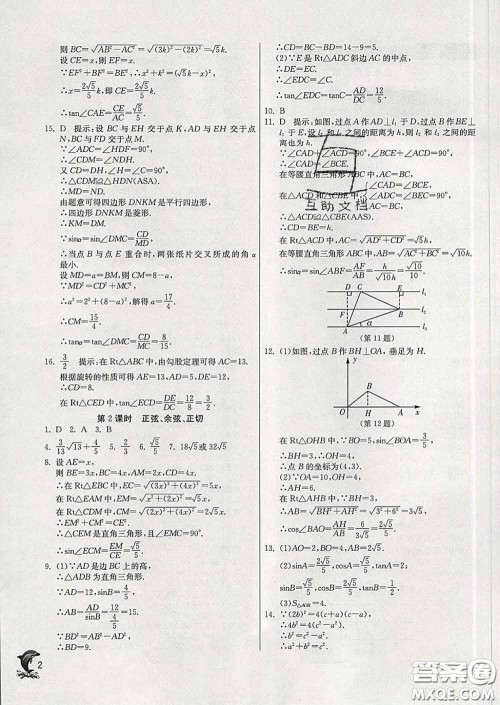 则 BC=√AB²-AC²=√(3k)²-(2k)²=√5k.
∵EF²+BF²=BE²,∴x²+k²=(√5k-x)².
∴x=2√5/5k.∴EF=2√5/5k.
∴tan∠CAE=CE/AC=√5/5.
15. D 提示:设 BC 与 EH 交于点 K,AD 与 EH 交于点 N,BC 与 FG 交于点 M.
∵∠ADC=∠HDF=90°,
∴∠CDM=∠NDH.
又 CD=DH,∠H=∠C=90°,
∴△CDM≌△HDN(ASA).
∴MD=ND.
由题意可得四边形 DNKM 是平行四边形.
∴四边形 DNKM 是菱形.
∴KM=DM.
∵sinα=sin∠DMC=CD/MD,
∴当点 B 与点 E 重合时,两张纸片交叉所成的角 α 最小.
设 MD=a=BM,则 CM=8-a.
∵MD²=CD²+MC²,
∴a²=2²+(8-a)².解得 a=17/4.
∴CM=15/4.
∴tanα=tan∠DMC=CD/CM=8/15.
16. 3/2 提示:在 Rt△ABC 中,由勾股定理可得 AC=13.
根据旋转的性质可得 AE=13,AD=5,DE=12.
∴CD=8.
在 Rt△CED 中,tan∠ECD=DE/DC=12/8=3/2.
第 2 课时 正弦、余弦、正切
1. D 2. A 3. B
4. 3/13√13 4/5 5. 4/3 6. 2√5/5 7. 18√5或32√5
8. 设 AE=x,
则 BE=3x,BC=4x,AM=2x,CD=4x.
在 Rt△EBC 中,CE=√(3x)²+(4x)²=5x.
在 Rt△EAM 中,EM=√x²+(2x)²=√5x.
在 Rt△CDM 中,CM=√(2x)²+(4x)²=2√5x.
∴EM²+CM²=CE².
∴△CEM 是直角三角形,且∠EMC=90°.
∴sin∠ECM=EM/CE=√5/5.
9. (1)∵AD 是边 BC 上的高,
∴△ADB 为直角三角形.
∵AD=12,sinB=4/5,
∴AB=AD/sinB=12/(4/5)=15.
∵BD²=AB²-AD²,
∴BD=9.
∴CD=BC-BD=14-9=5.
(2)∵E 是 Rt△ADC 斜边 AC 的中点,
∴DE=EC.
∴∠EDC=∠ECD.
∴tan∠EDC=tanC=AD/DC=12/5.
10. B
∴∠CAD=∠BCE.
在等腰直角三角形 ABC 中,AC=BC,
∴△ACD≌△CBE(AAS).
∴CD=BE=h.
在 Rt△ACD 中,AC=√AD²+CD²=√5h.
在等腰直角三角形 ABC 中,AB=√AC²+BC²=√10h,
∴sinα=sin∠ABF=AF/AB=h/√10h=√10/10.
D C E l₁
B l₂
A α l₃
(第 11 题)
12. (1)如图,过点 B 作 BH⊥OA,垂足为 H.
y
B
O H A x
(第 12 题)
在 Rt△OHB 中,∵BO=5,sin∠BOA=3/5,
∴BH=3.∴OH=4.
∴点 B 的坐标为(4,3).
(2)∵OA=10,OH=4,
∴AH=6.
在 Rt△AHB 中,∵BH=3,
∴AB=√BH²+AH²=√3²+6²=3√5.
∴cos∠BAO=AH/AB=6/3√5=2√5/5.
13. (1)AO=2,AB=2√5.
(2)sinA=2√5/5,cosA=√5/5,tanA=2,
sinB=√5/5,cosB=2√5/5,tanB=1/2.
14. ∵(2b)²=4(c+a)(c-a),
∴4b²=4(c²-a²).
∴b²=c²-a².
互助文档
2
答案圈
MXQE.COM